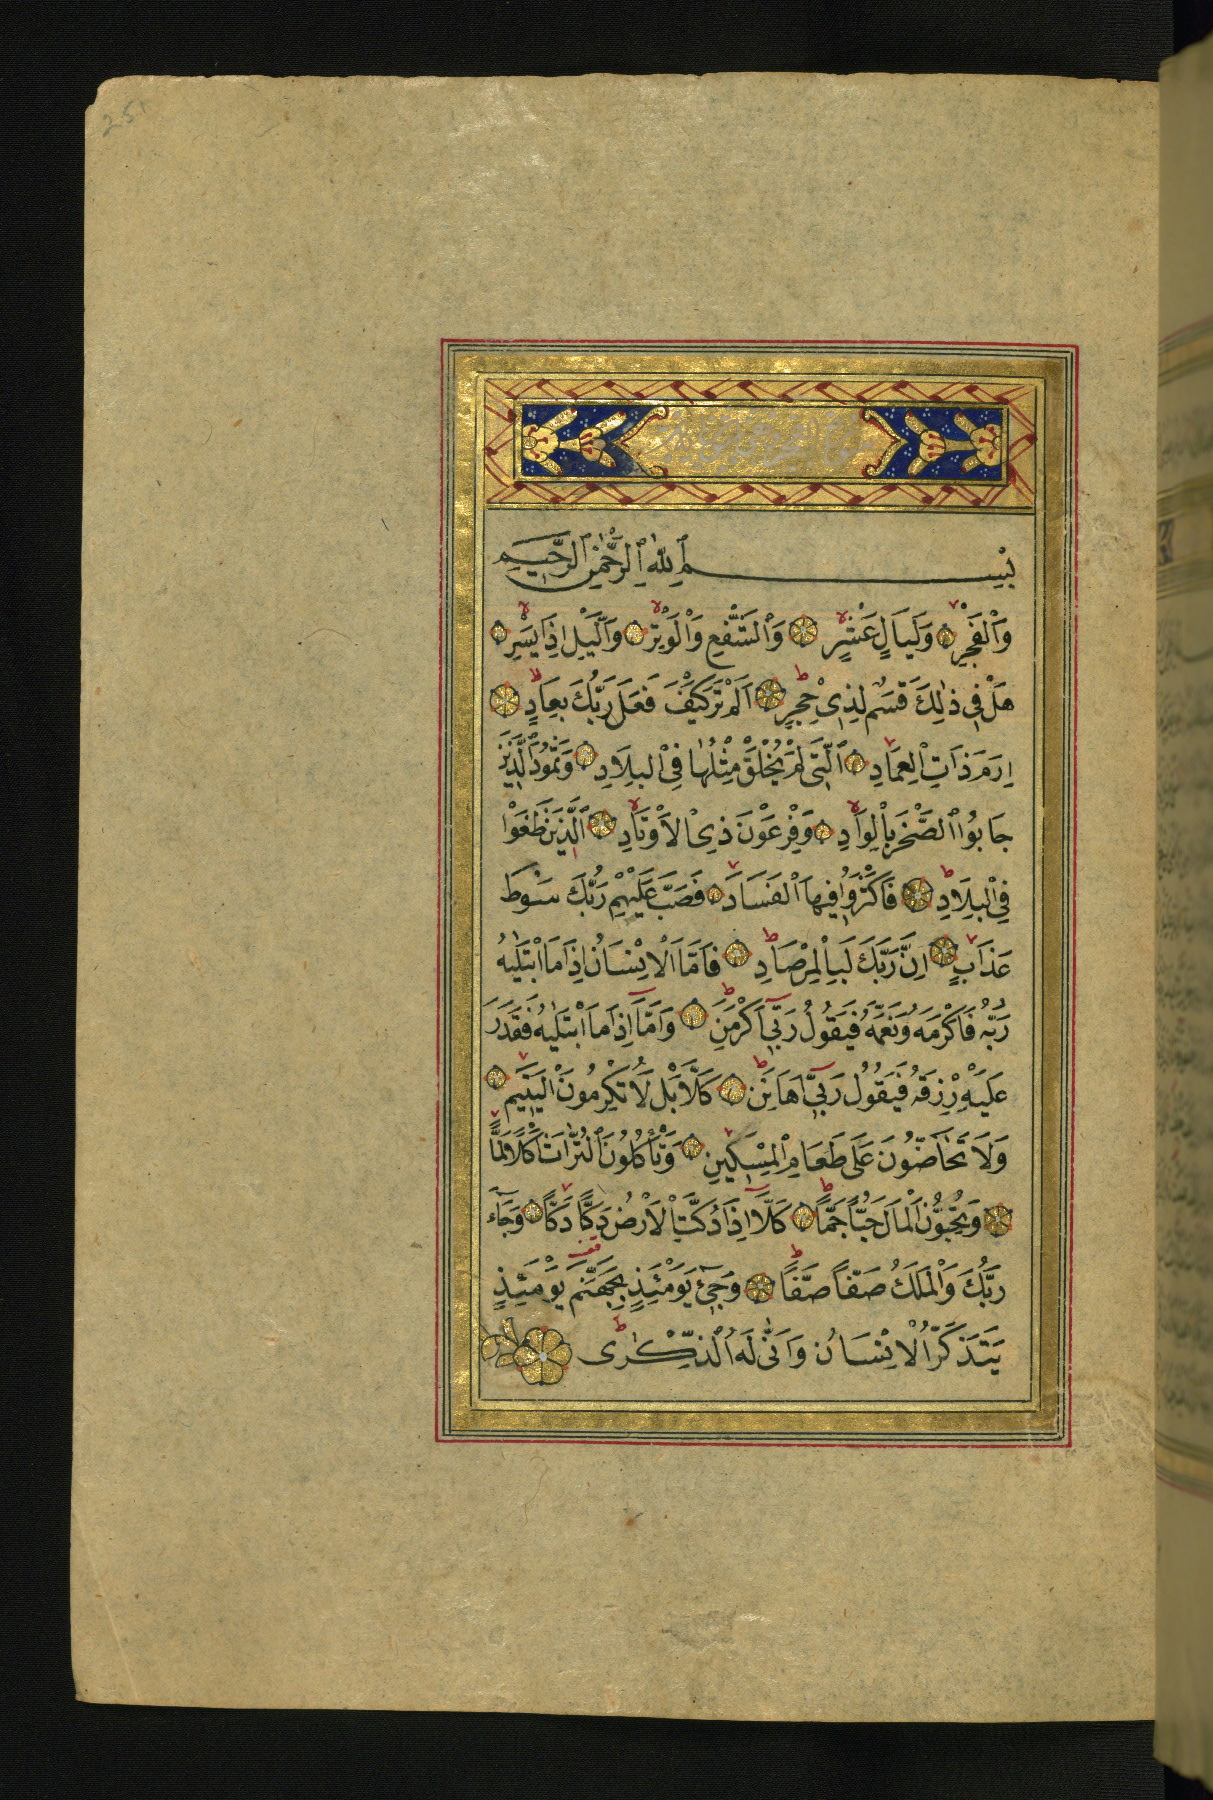 251
بِسْمِ ٱللّٰهِ ٱلرَّحْمٰنِ ٱلرَّحِيمِ
وَٱلْفَجْرِ وَلَيَالٍ عَشْرٍ وَٱلشَّفْعِ وَٱلْوَتْرِ وَٱلَّيْلِ اِذَا يَسْرِ
هَلْ فِى ذٰلِكَ قَسَمٌ لِذِى حِجْرٍ اَلَمْ تَرَ كَيْفَ فَعَلَ رَبُّكَ بِعَادٍ
اِرَمَ ذَاتِ ٱلْعِمَادِ ٱلَّتِى لَمْ يُخْلَقْ مِثْلُهَا فِى ٱلْبِلَادِ وَثَمُودَ ٱلَّذِينَ
جَابُوا ٱلصَّخْرَ بِالْوَادِ وَفِرْعَوْنَ ذِى ٱلْاَوْتَادِ ٱلَّذِينَ طَغَوْا
فِى ٱلْبِلَادِ فَاَكْثَرُوا فِيهَا ٱلْفَسَادَ فَصَبَّ عَلَيْهِمْ رَبُّكَ سَوْطَ
عَذَابٍ اِنَّ رَبَّكَ لَبِالْمِرْصَادِ فَاَمَّا ٱلْاِنْسَانُ اِذَا مَا ابْتَلٰيهُ
رَبُّهُ فَاَكْرَمَهُ وَنَعَّمَهُ فَيَقُولُ رَبِّى اَكْرَمَنِ وَاَمَّا اِذَا مَا ابْتَلٰيهُ فَقَدَرَ
عَلَيْهِ رِزْقَهُ فَيَقُولُ رَبِّى اَهَانَنِ كَلَّا بَلْ لَا تُكْرِمُونَ ٱلْيَتِيمَ
وَلَا تَحَاضُّونَ عَلَى طَعَامِ ٱلْمِسْكِينِ وَتَأْكُلُونَ ٱلتُّرَاثَ اَكْلًا لَمًّا
وَتُحِبُّونَ ٱلْمَالَ حُبًّا جَمًّا كَلَّا اِذَا دُكَّتِ ٱلْاَرْضُ دَكًّا دَكًّا وَجَآءَ
رَبُّكَ وَٱلْمَلَكُ صَفًّا صَفًّا وَجِىءَ يَوْمَئِذٍ بِجَهَنَّمَ يَوْمَئِذٍ
يَتَذَكَّرُ ٱلْاِنْسَانُ وَاَنّٰى لَهُ ٱلذِّكْرٰى